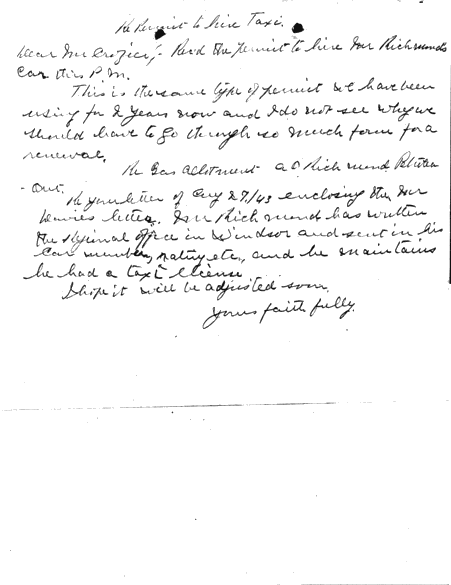 Re Permit to hire Taxi.
Dear Mr Crozier,- Recd the permit to hire Mr Richmonds
Car this P.M.
This is the same type of permit we have been
using for 2 years now and I do not see why we
should have to go through so much form for a
renewal.
Re Gas allotment a O Richmond
Ont.
Re your letter of Aug 27/43 enclosing the Mr
letter. Mr Richmond has written
the regional office in Windsor and sent in his
Car number, rating etc, and he maintains
he had a taxi license
I hope it will be adjusted soon,
yours faithfully.